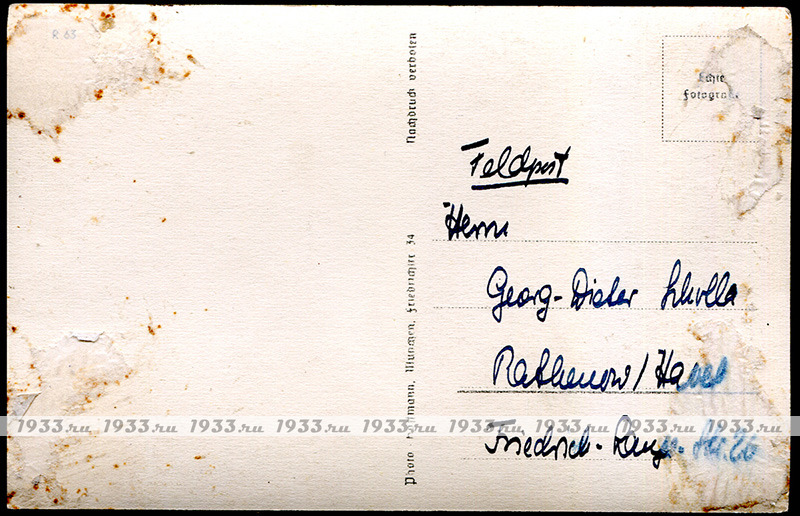 R. 63
Nachdruck verboten
Echte
Fotografie
Feldpost
Herrn
Georg-Dieter
Rathenow/Havel
Friedrich-
Photo Hoffmann, München, Friedrichstr 34
1933.ru 1933.ru 1933.ru 1933.ru 1933.ru 1933.ru 1933.ru 1933.ru 1933.ru